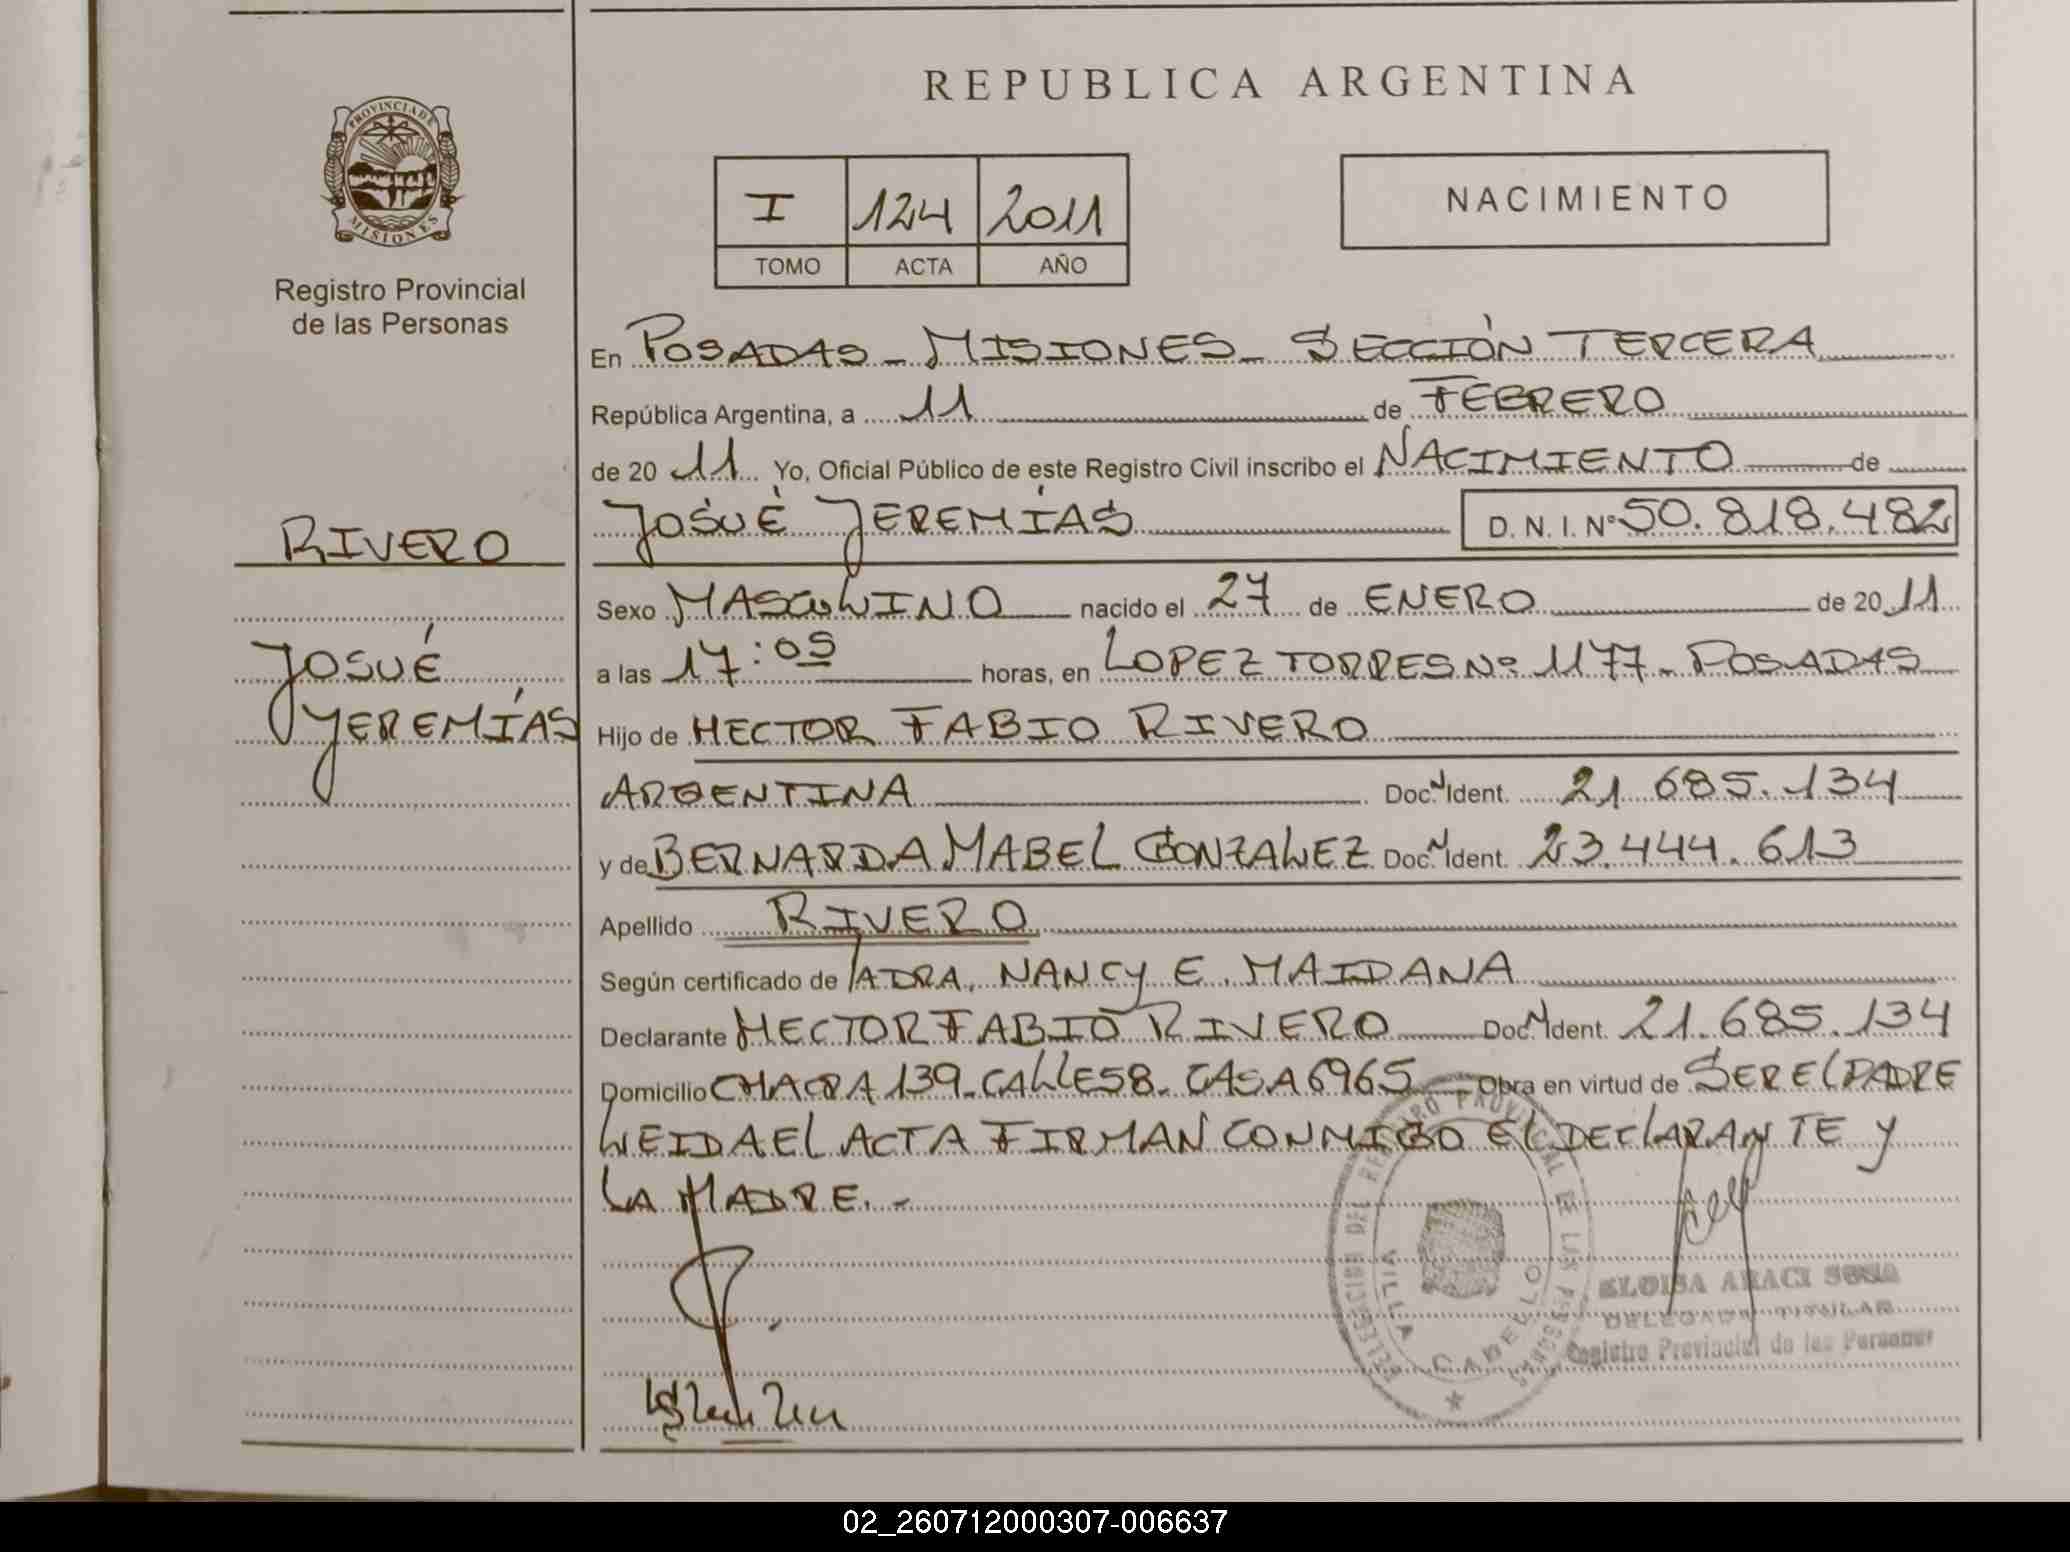 REPUBLICA ARGENTINA
PROVINCIA DE
MISIONES
Registro Provincial
de las Personas
I 124 2011
TOMO ACTA AÑO
NACIMIENTO
En POSADAS - MISIONES - SECCIÓN TERCERA
República Argentina, a 11 de FEBRERO
de 20 11 Yo, Oficial Público de este Registro Civil inscribo el NACIMIENTO de
JOSUÉ JEREMÍAS D. N. I. Nº 50.818.482
RIVERO
JOSUÉ
JEREMÍAS
Sexo MASCULINO nacido el 27 de ENERO de 20 11
a las 17:05 horas, en LOPEZ TORRES Nº 1177 - POSADAS
Hijo de HECTOR FABIO RIVERO
ARGENTINA Doc. N Ident. 21.685.134
y de BERNARDA MABEL GONZALEZ Doc. N Ident. 23.444.613
Apellido RIVERO
Según certificado de MAIDANA
Declarante HECTOR FABIO RIVERO Doc. N Ident. 21.685.134
Domicilio CHACRA 139 - CALLE 58 - CASA 6965 Obra en virtud de SER EL PADRE
LEIDA EL ACTA FIRMAN CONMIGO EL DECLARANTE Y
LA MADRE. -
DELEGACION DEL REGISTRO PROVINCIAL DE LAS PERSONAS
VILLA CABELLO
ELOISA ARACI SOSA
DELEGADA TITULAR
Registro Provincial de las Personas
02_260712000307-006637